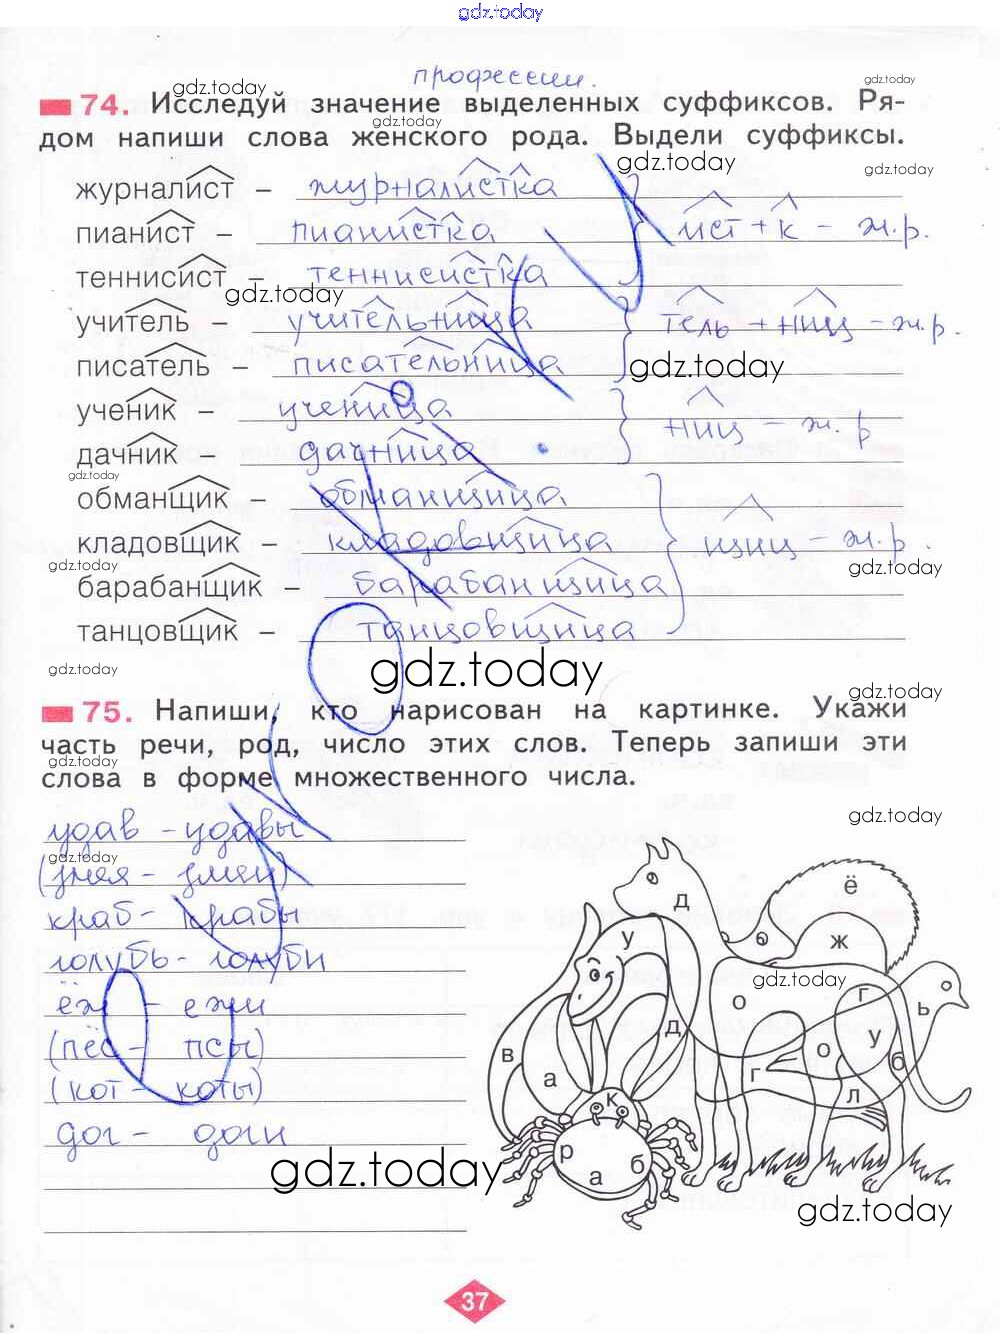 gdz.today
профессии.
gdz.today gdz.today
74. Исследуй значение выделенных суффиксов. Ря-
gdz.today
дом напиши слова женского рода. Выдели суффиксы.
gdz.today gdz.today
журналист – журналистка
пианист – пианистка } ист + к – ж.р.
теннисист – теннисистка
gdz.today
учитель – учительница } тель + ниц – ж.р.
писатель – писательница
gdz.today
ученик – ученица } ниц – ж.р
дачник – дачница
gdz.today
обманщик – обманщица
кладовщик – кладовщица } щиц – ж.р.
gdz.today gdz.today
барабанщик – барабанщица
танцовщик – танцовщица
gdz.today gdz.today
75. Напиши, кто нарисован на картинке. Укажи
gdz.today
часть речи, род, число этих слов. Теперь запиши эти
gdz.today
слова в форме множественного числа.
удав – удавы
gdz.today
gdz.today
(змея – змеи)
краб – крабы
голубь – голуби
ёж – ежи
(пёс – псы)
(кот – коты)
дог – доги
д ё
у ж
gdz.today
о г ь
в д о у б
а г л
к
р б
а
gdz.today
gdz.today
37